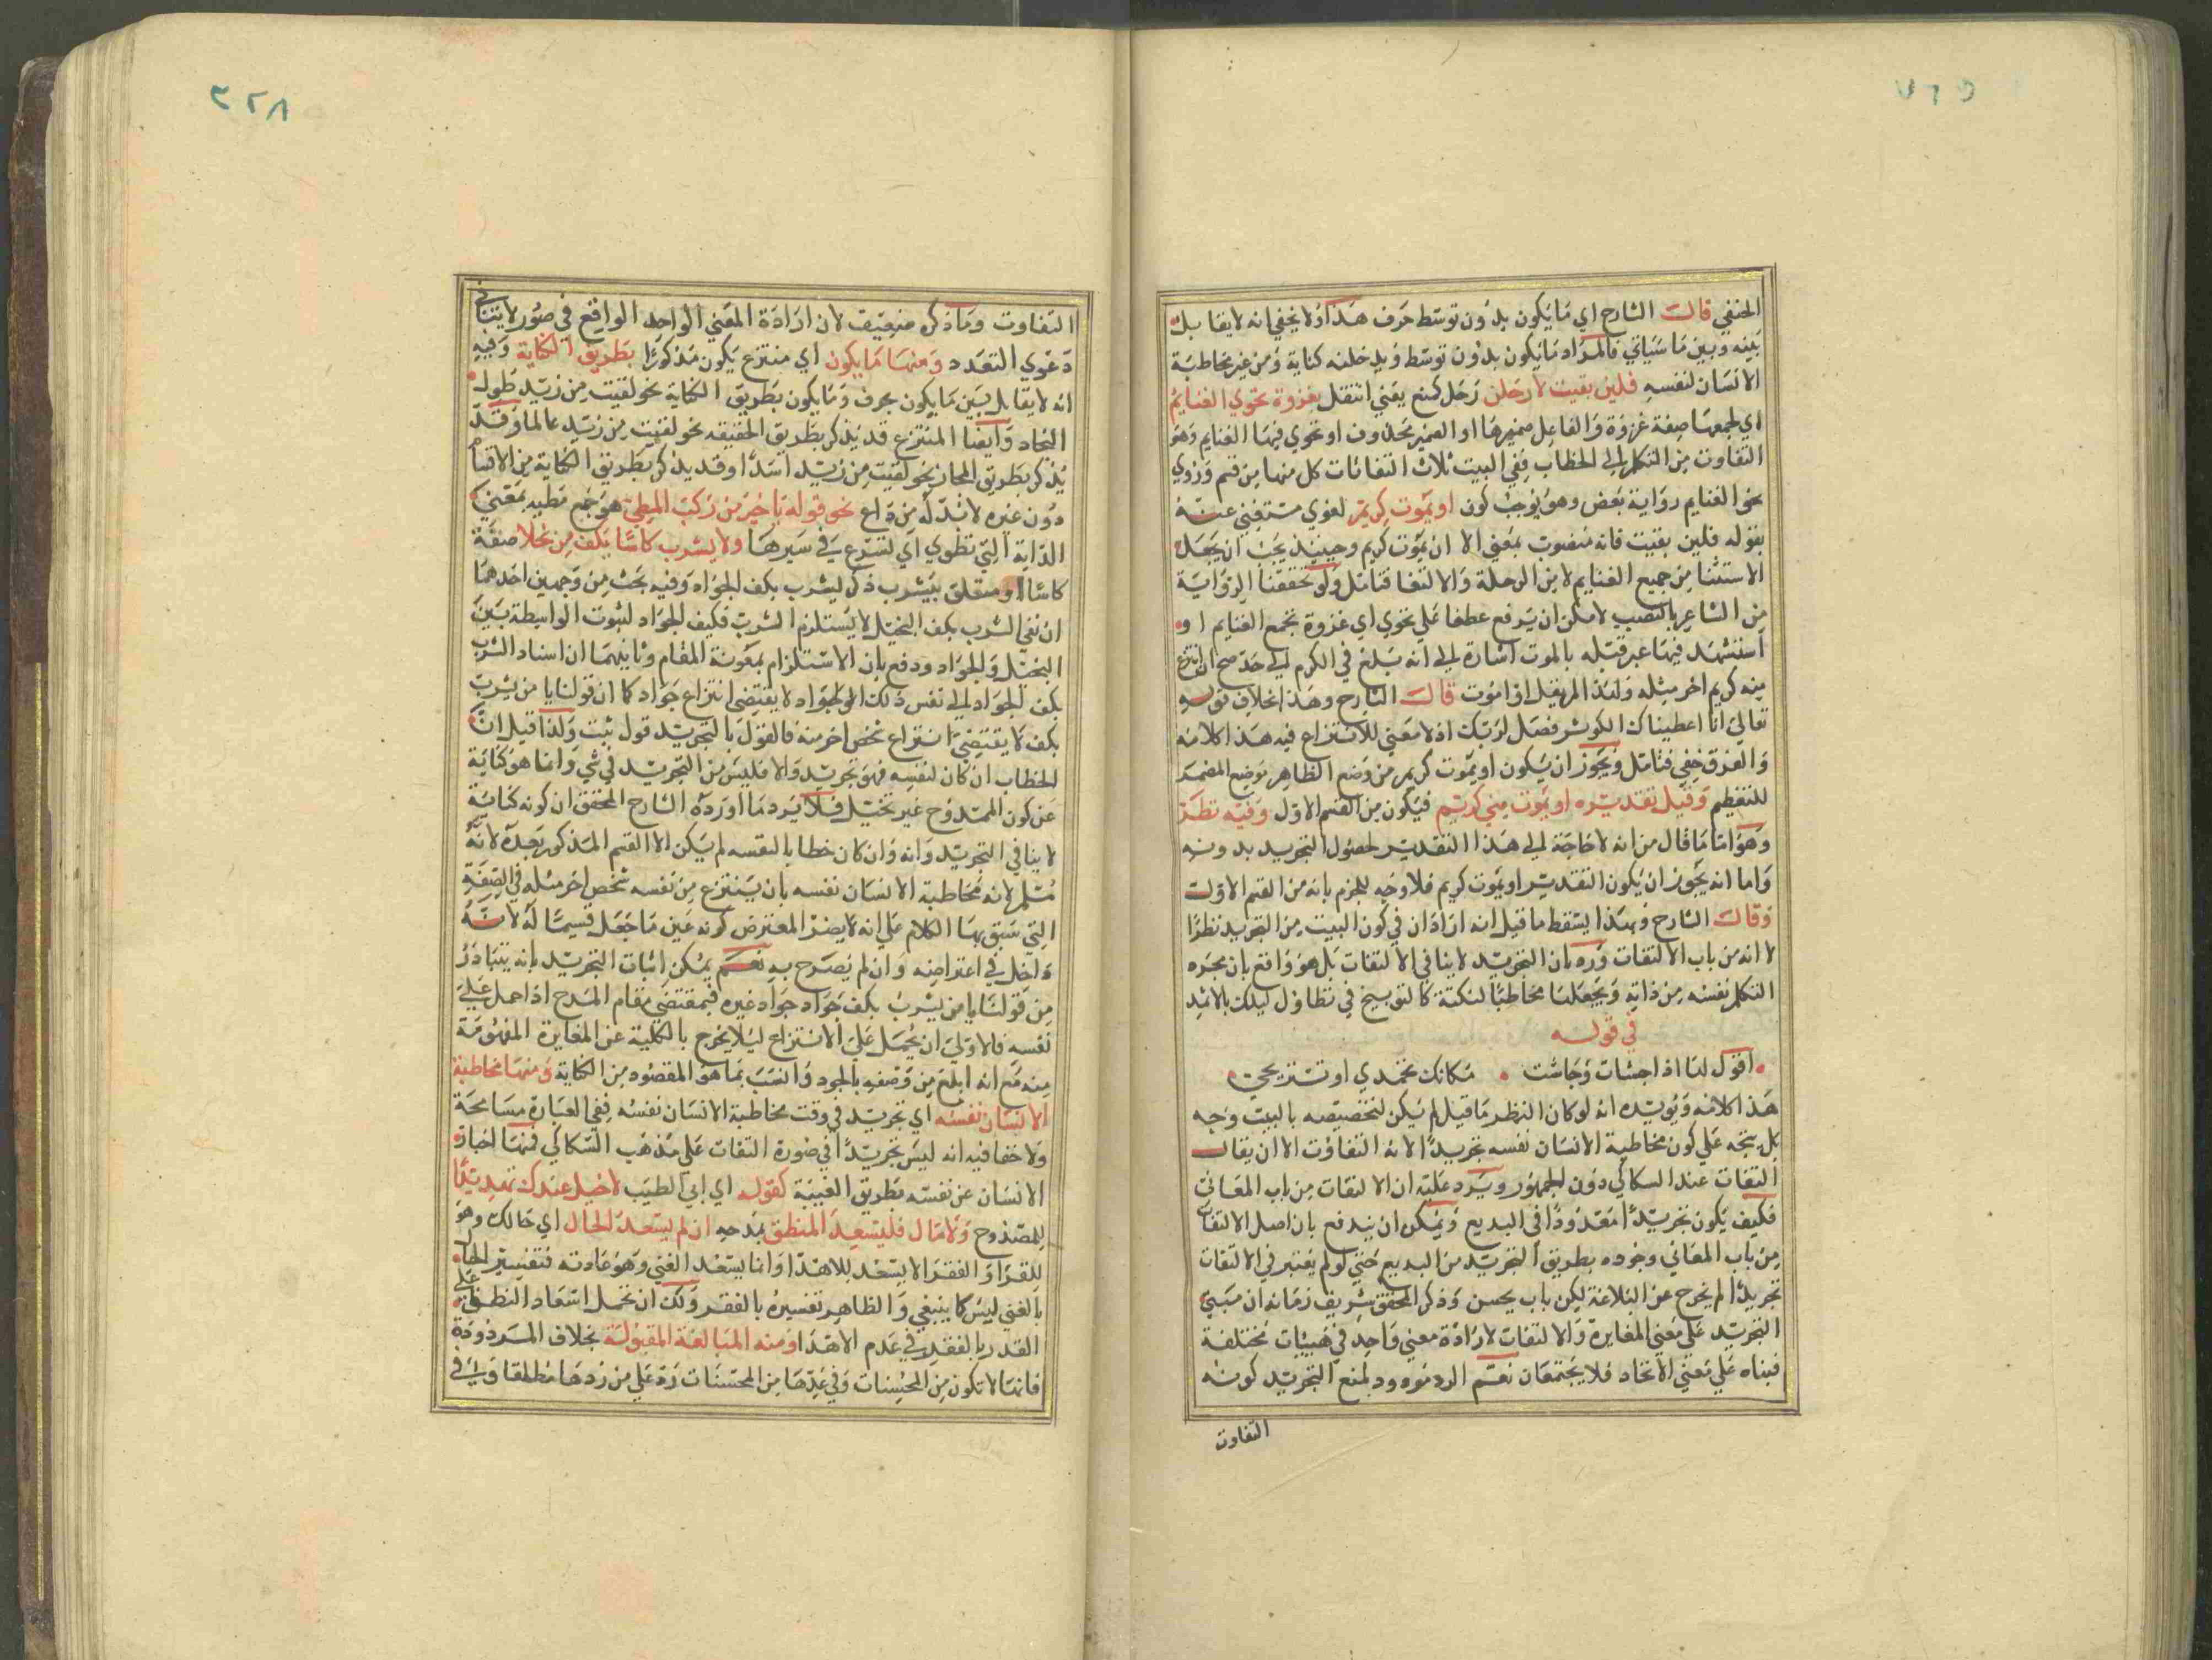 الحنفي قال الشارح اي ما يكون بدون توسط حرف هذا ولا يخفي انه لا يقابل
بينه وبين ما سياتي فالمراد ما يكون بدون توسط وبدخلنه كناية ومن غير مخاطبة
الانسان لنفسه فلين بقيت لارحلن رحل كمنع يعني انتقل بغزوة تحوي الغنايم
اي لجمعها صفة غزوة والفاعل ضميرها او الضمير محذوف او تحوي فيها الغنايم وهو
التفاوت من التكلم الي الخطاب ففي البيت ثلاث التفاتات كل منها من قسم وروي
نحو الغنايم رواية بعض وهو يوجب كون او يموت كريم لغوي مستغني عنه
بقوله فلين بقيت فانه منصوب بمعني الا ان يموت كريم وحينيذ يجب ان يجعل
الاستثنا من جميع الغنايم لا من الرحلة والالتفا فتامل ولو تحققنا الرواية
من الشاعر بالنصب لامكن ان يرفع عطفا علي تحوي اي غزوة تجمع الغنايم او
استشهد فيها عبر قتله بالموت اشارة الي انه بلغ في الكرم الي حد صح ان انتزع
منه كريم اخر مثله ولهذا لم يقل او اموت قال الشارح وهذا بخلاف قوله
تعالي انا اعطيناك الكوثر فصل لربك اذ لا معني للانتزاع فيه هذا كلامه
والفرق خفي فتامل ويجوز ان يكون او يموت كريم من وضع الظاهر موضع المضمر
للتعظيم وقيل تقديره او يموت مني كريم فيكون من القسم الاول وفيه نظر
وهو اما ما قال من انه لا حاجة الي هذا التقدير لحصول التجريد بدونه
واما انه يجوز ان يكون التقدير او يموت كريم فلا وجه للجزم بانه من القسم الاول
وقال الشارح وبهذا يسقط ما قيل انه اراد ان في كون البيت من التجريد نظرا
لانه من باب الالتفات ورد بان التجريد لا ينافي الالتفات بل هو واقع بان يجرد
التكلم نفسه من ذاته ويجعلها مخاطبا لنكتة كالتوبيخ في تطاول ليلك بالاثمد
في قوله
اقول لها اذا جشات وجاشت مكانك تحمدي او تستريحي
هذا كلامه ويويده انه لو كان النظر ما قيل لم يكن لتخصيصه بالبيت وجه
بل يتجه علي كون مخاطبة الانسان نفسه تجريدا لانه التفاوت الا ان يقال
التفات عند السكاكي دون الجمهور ويرد عليه ان الالتفات من باب المعاني
فكيف يكون تجريدا معدودا في البديع ويمكن ان يندفع بان اصل الالتفات
من باب المعاني وجوده بطريق التجريد من البديع حتي لو لم يعتبر في الالتفات
تجريدا لم يخرج عن البلاغة لكن باب يحسن وذكر المحقق شريف زمانه ان مبني
التجريد علي معني المغايرة والالتفات لارادة معني واحد في هييات مختلفة
فبناه علي معني الاتحاد فلا يجتمعان نعم الرد مردود لمنع التجريد كونه
التفاوت
٣٢٨
التفاوت وما ذكره ضعيف لان ارادة المعني الواحد الواقع في صور لا ينافي
دعوي التعدد ومنها ما يكون اي منتزع يكون مذكورا بطريق الكناية وفيه
انه لا يقابل بين ما يكون بحرف وما يكون بطريق الكناية نحو لقيت من زيد طول
النجاد وايضا المنتزع قد يذكر بطريق الحقيقه نحو لقيت من زيد عالما وقد
يذكر بطريق المجاز نحو لقيت من زيد اسدا وقد يذكر بطريق الكناية من الاقسام
دون غيره لا بد له من داع نحو قوله يا خير من ركب المطي هو جمع مطيه بمعني
الدابة التي تطوي اي تسرع في سيرها ولا يشرب كاسا بكف من بخلا صفة
كاسا او متعلق بيشرب ذكر ليشرب بكف الجواد وفيه بحث من وجهين احدهما
ان نفي الشرب بكف البخيل لا يستلزم الشرب فكيف الجواد لثبوت الواسطة بين
البخيل والجواد ودفع بان الاستلزام بمعونة المقام وثانيهما ان اسناد الشرب
بكف الجواد الي نفس ذلك الجواد لا يقتضي انتزاع جواد كما ان قولنا يا من يشرب
بكف لا يقتضي انتزاع شخص اخر منه فالقول بالتجريد قول بثبت ولذا قيل ان
الخطاب ان كان لنفسه فهو تجريد والا فليس من التجريد في شي وانما هو كناية
عن كون الممدوح غير بخيل فلا يرد ما اورده الشارح المحقق ان كونه كناية
لا ينافي التجريد وانه وان كان خطابا لنفسه لم يكن الا القسم المذكور بعده لانه
مثلها لانه مخاطبة الانسان نفسه بان ينتزع من نفسه شخص اخر مثله في الصفة
التي سبق بها الكلام علي انه لا يضر المعترض كونه عين ما جعل قسيما له لانه
داخل في اعتراضه وان لم يصرح به نعم يمكن اثبات التجريد بانه يتبادر
من قولنا يا من يشرب بكف جواد جواد غيره فبمقتضي مقام المدح اذا حمل علي
نفسه فالاولي ان يحمل علي الانتزاع ليلا يخرج بالكلية عن المغايرة المفهومة
منه مع انه ابلغ من وصفه بالجود وانسب بما هو المقصود من الكناية ومنها مخاطبة
الانسان نفسه اي تجريد في وقت مخاطبة الانسان نفسه ففي العبارة مسامحة
ولا خفا فيه انه ليس تجريدا في صورة التفات علي مذهب السكاكي فمنها اخبار
الانسان عن نفسه بطريق الغيبة كقوله اي ابي الطيب لا خيل عندك تهديها
للممدوح ولا مال فليسعد المنطق بمدحه ان لم يسعد الحال اي حالك وهو
للفقرا والفقر الا يسعد بللاهدا وانما يسعد الغني وهو عادته فتفسير الحال
بالغني ليس كما ينبغي والظاهر تفسيره بالفقر ولك ان تحمل اسعاد النطق علي
القدر بالفقر في عدم الاهدا ومنه المبالغة المقبولة بخلاف المردودة
فانها لا تكون من المحسنات وفي عدها من المحسنات رد علي من ردها مطلقا